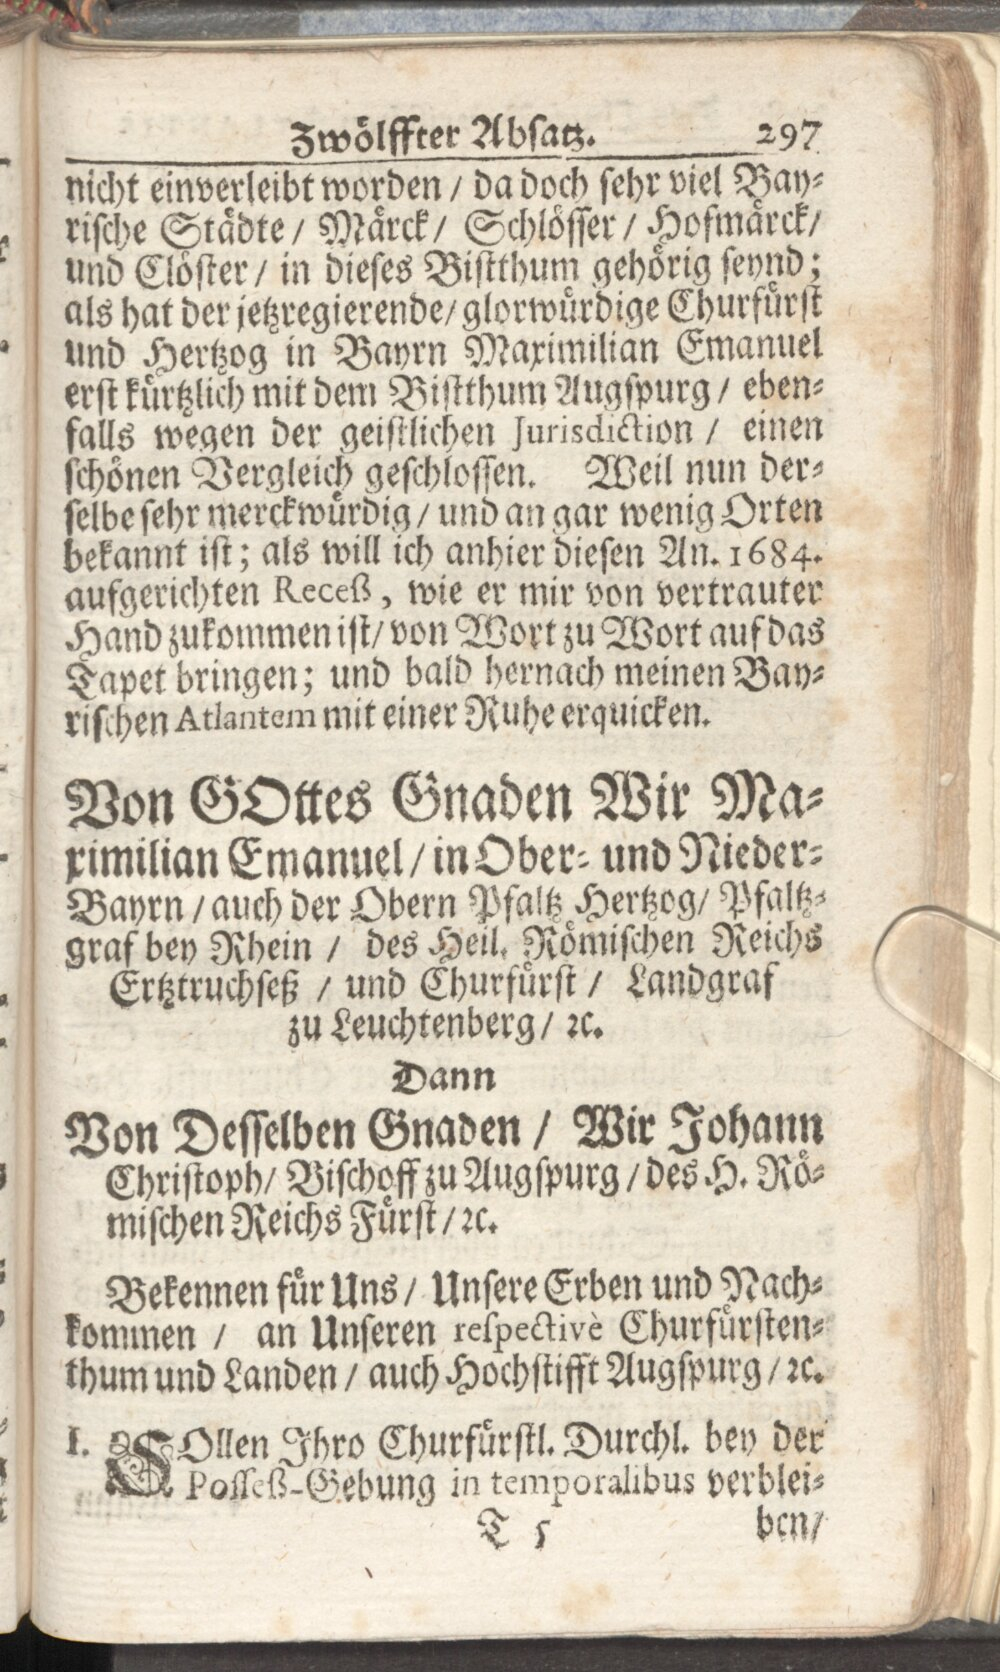 Zwölffter Absatz. 297
nicht einverleibt worden / da doch sehr viel Bay-
rische Städte / Märck / Schlösser / Hofmärck /
und Clöster / in dieses Bistthum gehörig seynd;
als hat der jetzregierende / glorwürdige Churfürst
und Hertzog in Bayrn Maximilian Emanuel
erst kürtzlich mit dem Bistthum Augspurg / eben-
falls wegen der geistlichen Jurisdiction / einen
schönen Vergleich geschlossen. Weil nun der-
selbe sehr merckwürdig / und an gar wenig Orten
bekannt ist; als will ich anhier diesen An. 1684.
aufgerichten Receß, wie er mir von vertrauter
Hand zukommen ist / von Wort zu Wort auf das
Tapet bringen; und bald hernach meinen Bay-
rischen Atlantem mit einer Ruhe erquicken.
Von GOttes Gnaden Wir Ma-
ximilian Emanuel / in Ober- und Nieder-
Bayrn / auch der Obern Pfaltz Hertzog / Pfaltz-
graf bey Rhein / des Heil. Römischen Reichs
Ertztruchseß / und Churfürst / Landgraf
zu Leuchtenberg / ꝛc.
Dann
Von Desselben Gnaden / Wir Johann
Christoph / Bischoff zu Augspurg / des H. Rö-
mischen Reichs Fürst / ꝛc.
Bekennen für Uns / Unsere Erben und Nach-
kommen / an Unseren respectivè Churfürsten-
thum und Landen / auch Hochstifft Augspurg / ꝛc.
I. SOllen Ihro Churfürstl. Durchl. bey der
Posseß-Gebung in temporalibus verblei-
T 5 ben /